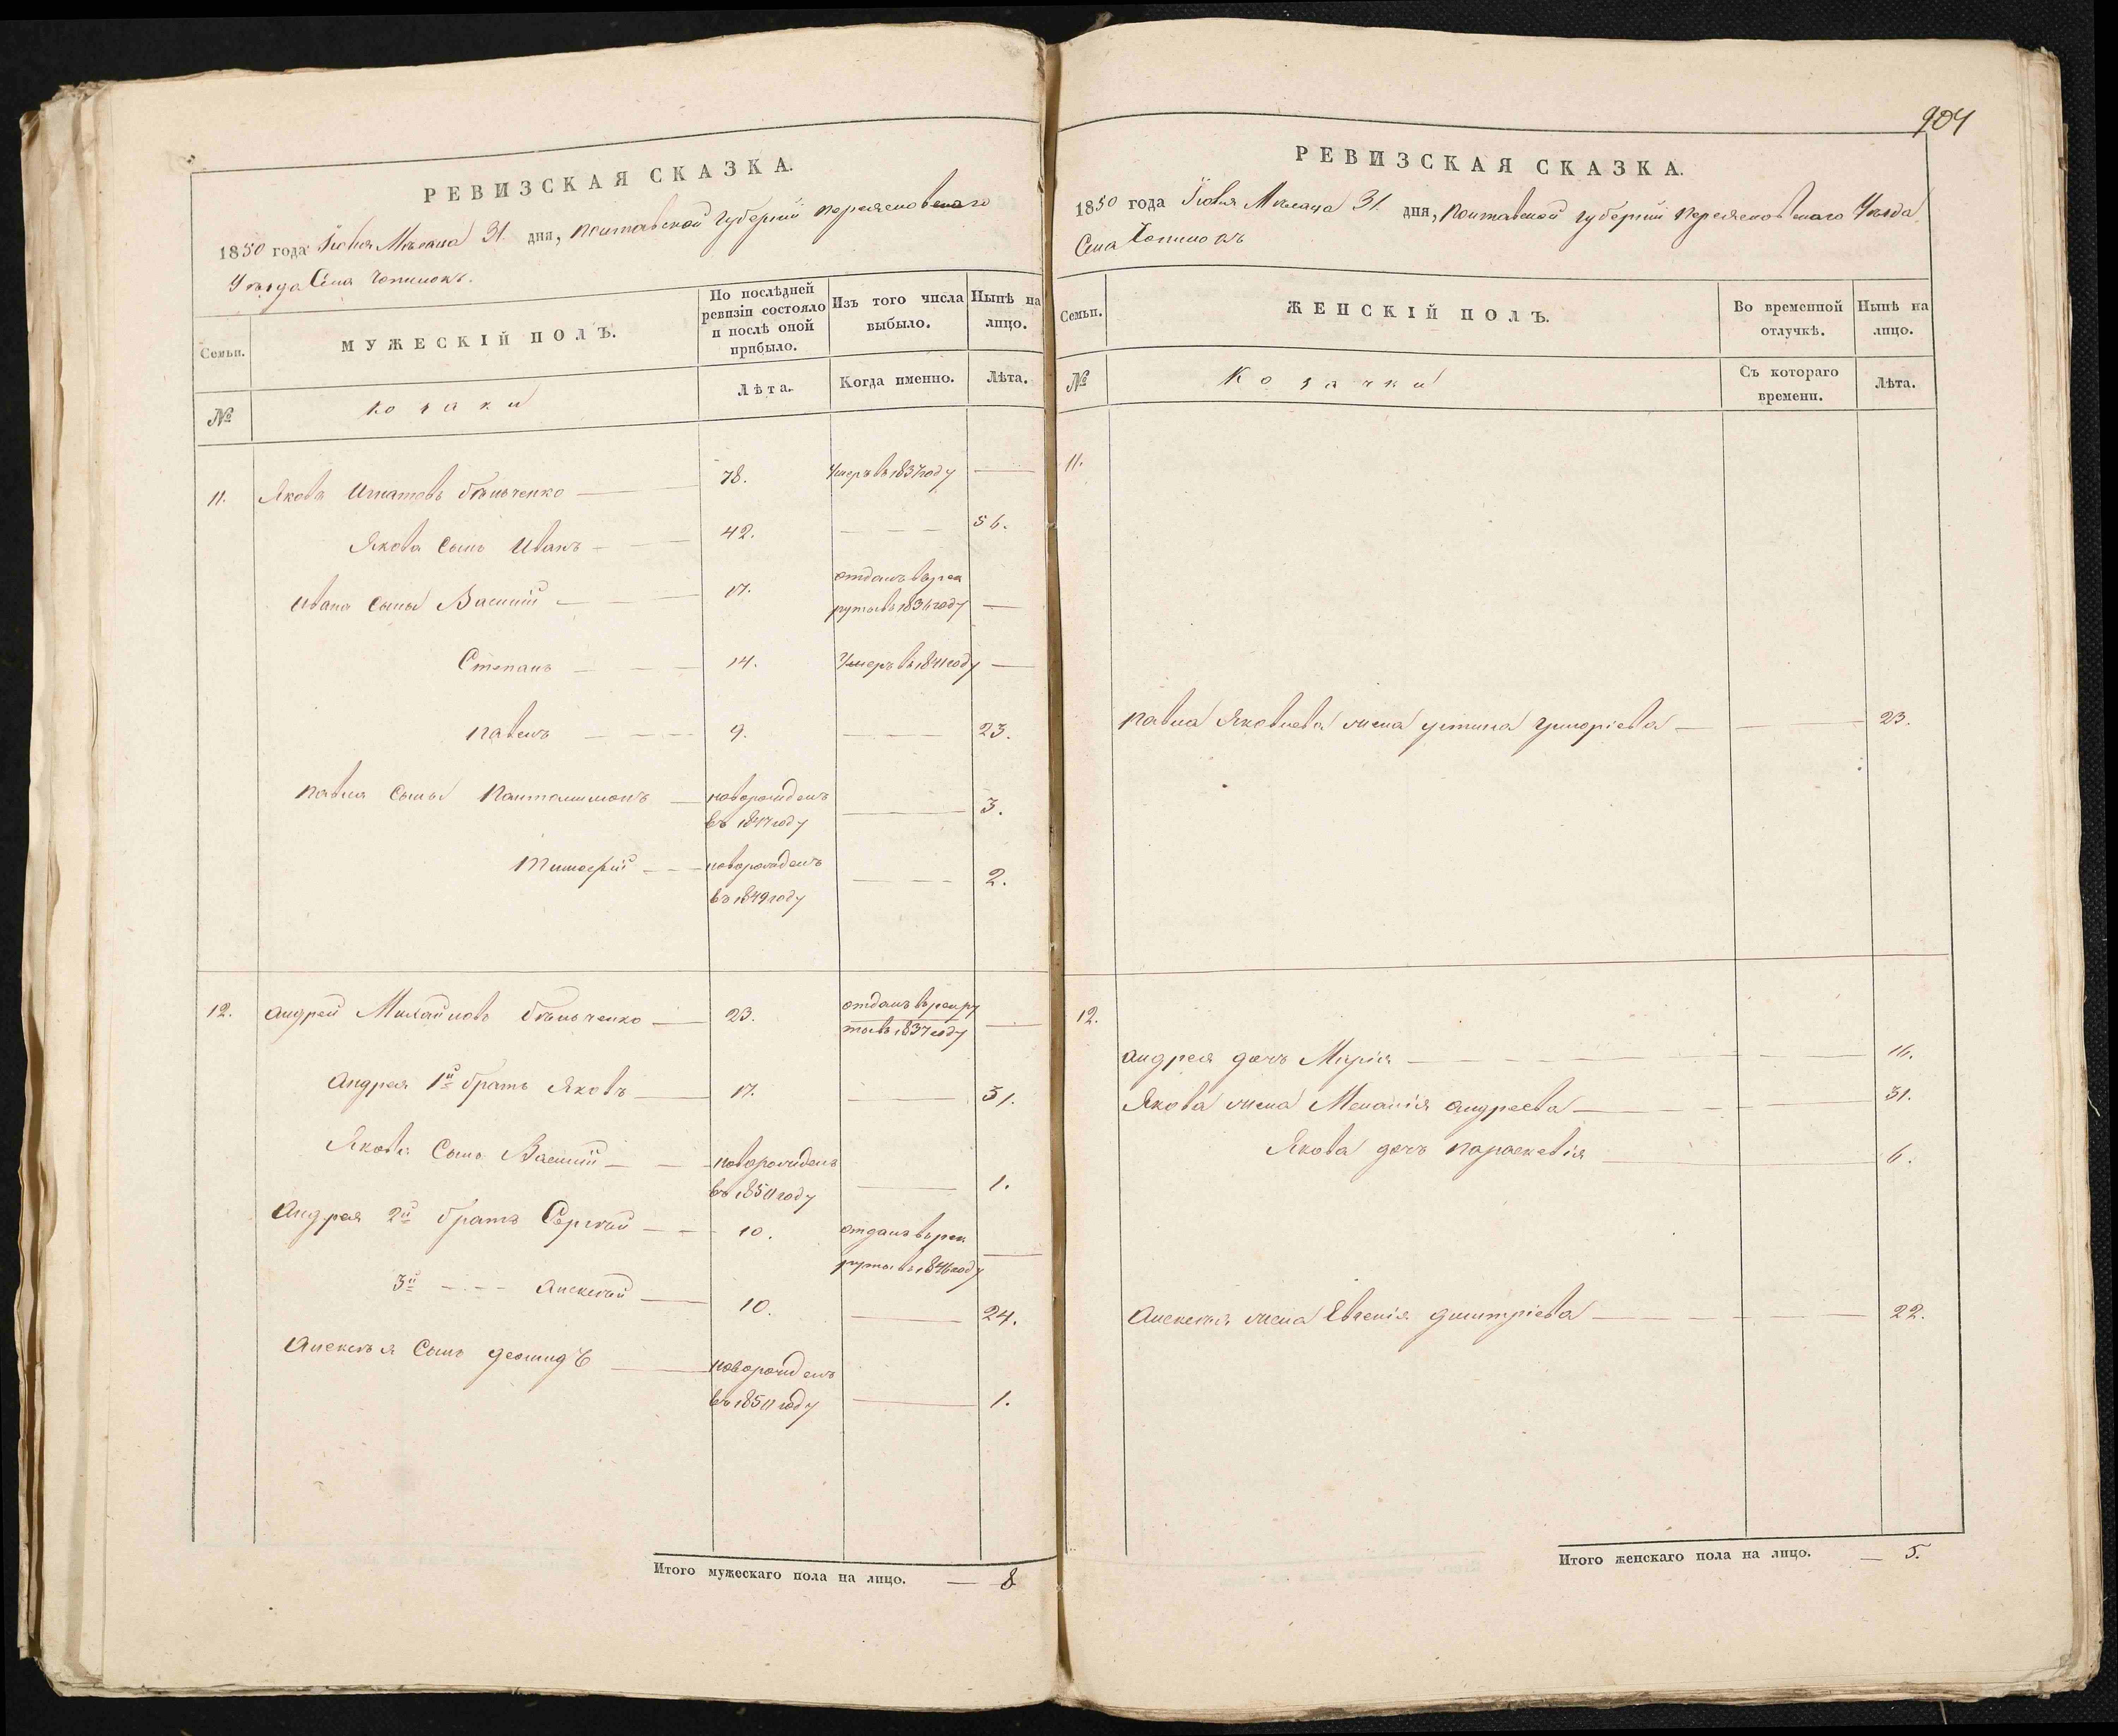 904
РЕВИЗСКАЯ СКАЗКА.
1850 года Іюля Мѣсяца 31 дня, Полтавской губерніи Переясловскаго
Уѣзда Села Чопилокъ.
Семьи.
МУЖЕСКІЙ ПОЛЪ.
По послѣдней ревизіи состояло и послѣ оной прибыло.
Изъ того числа выбыло.
Нынѣ на лицо.
№
Козаки
Лѣта.
Когда именно.
Лѣта.
11. Яковъ Игнатовъ Бѣльченко 78. Умеръ въ 1837 году
Якова Сынъ Иванъ 42. 56.
Ивана Сыны Василій 17. отданъ въ рек
руты въ 1836 году
Степанъ 14. Умеръ въ 1841 году
Павелъ 9. 23.
Павла Сыны Панталимонъ новорожденъ 3.
въ 1847 году
Тимофій новорожденъ 2.
въ 1849 году
12. Андрей Михайловъ Бѣльченко 23. отданъ въ рекру
ты въ 1837 году
Андрея 1й братъ Яковъ 17. 31.
Якова Сынъ Василій новорожденъ 1.
въ 1850 году
Андрея 2й братъ Сергѣй 10. отданъ въ рек
руты въ 1846 году
3й Алексѣй 10. 24.
Алексѣя Сынъ новорожденъ 1.
въ 1850 году
Итого мужескаго пола на лицо. — 8
РЕВИЗСКАЯ СКАЗКА.
1850 года Іюля Мѣсяца 31 дня, Полтавской губерніи Переясловскаго Уѣзда
Села Чопилокъ
Семьи.
ЖЕНСКІЙ ПОЛЪ.
Во временной отлучкѣ.
Нынѣ на лицо.
№
Козачки
Съ котораго времени.
Лѣта.
11.
Павла Яковлева жена Устина Григоріева 23.
12.
Андрея дочь Марія 16.
Якова жена Меланія Андреева 31.
Якова дочь Параскевія 6.
Алексѣя жена Евгенія Дмитріева 22.
Итого женскаго пола на лицо. — 5.